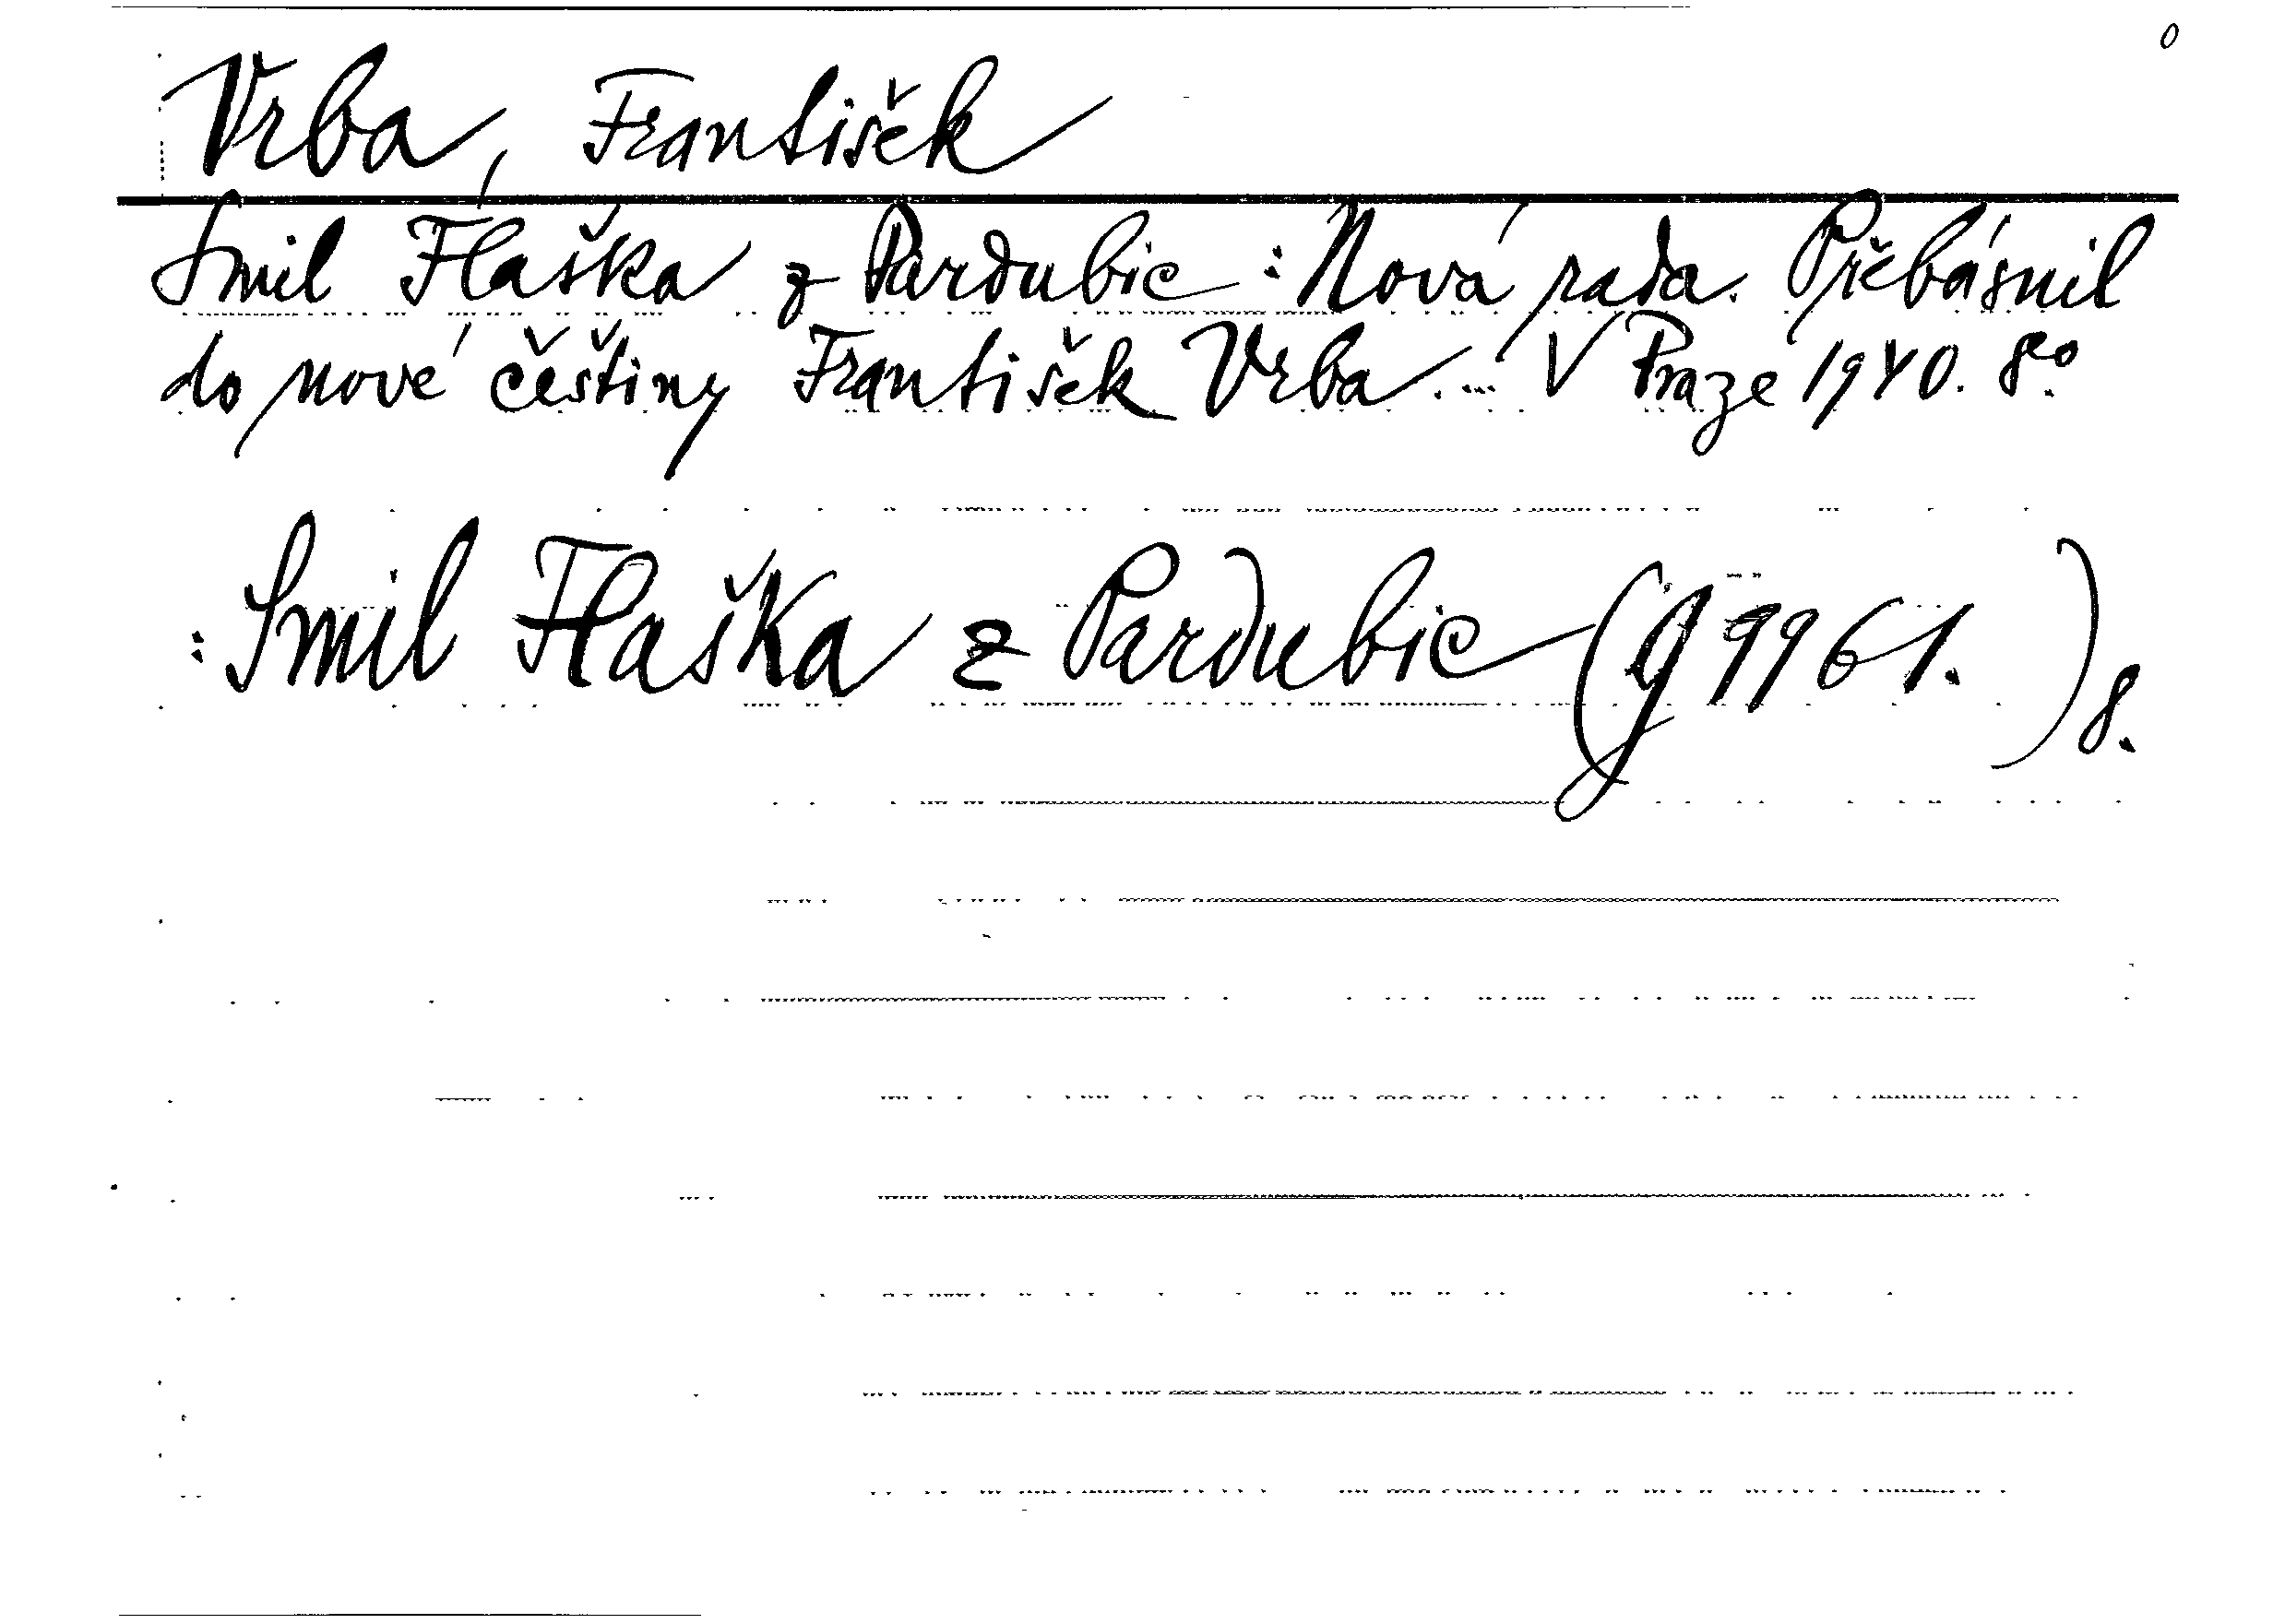 0
Vrba, František
Smil Flaška z Pardubic: Nová rada. Přebásnil
do nové češtiny František Vrba.... V Praze 1940. 8o.
: Smil Flaška z Pardubic (g 9961. ) 8.